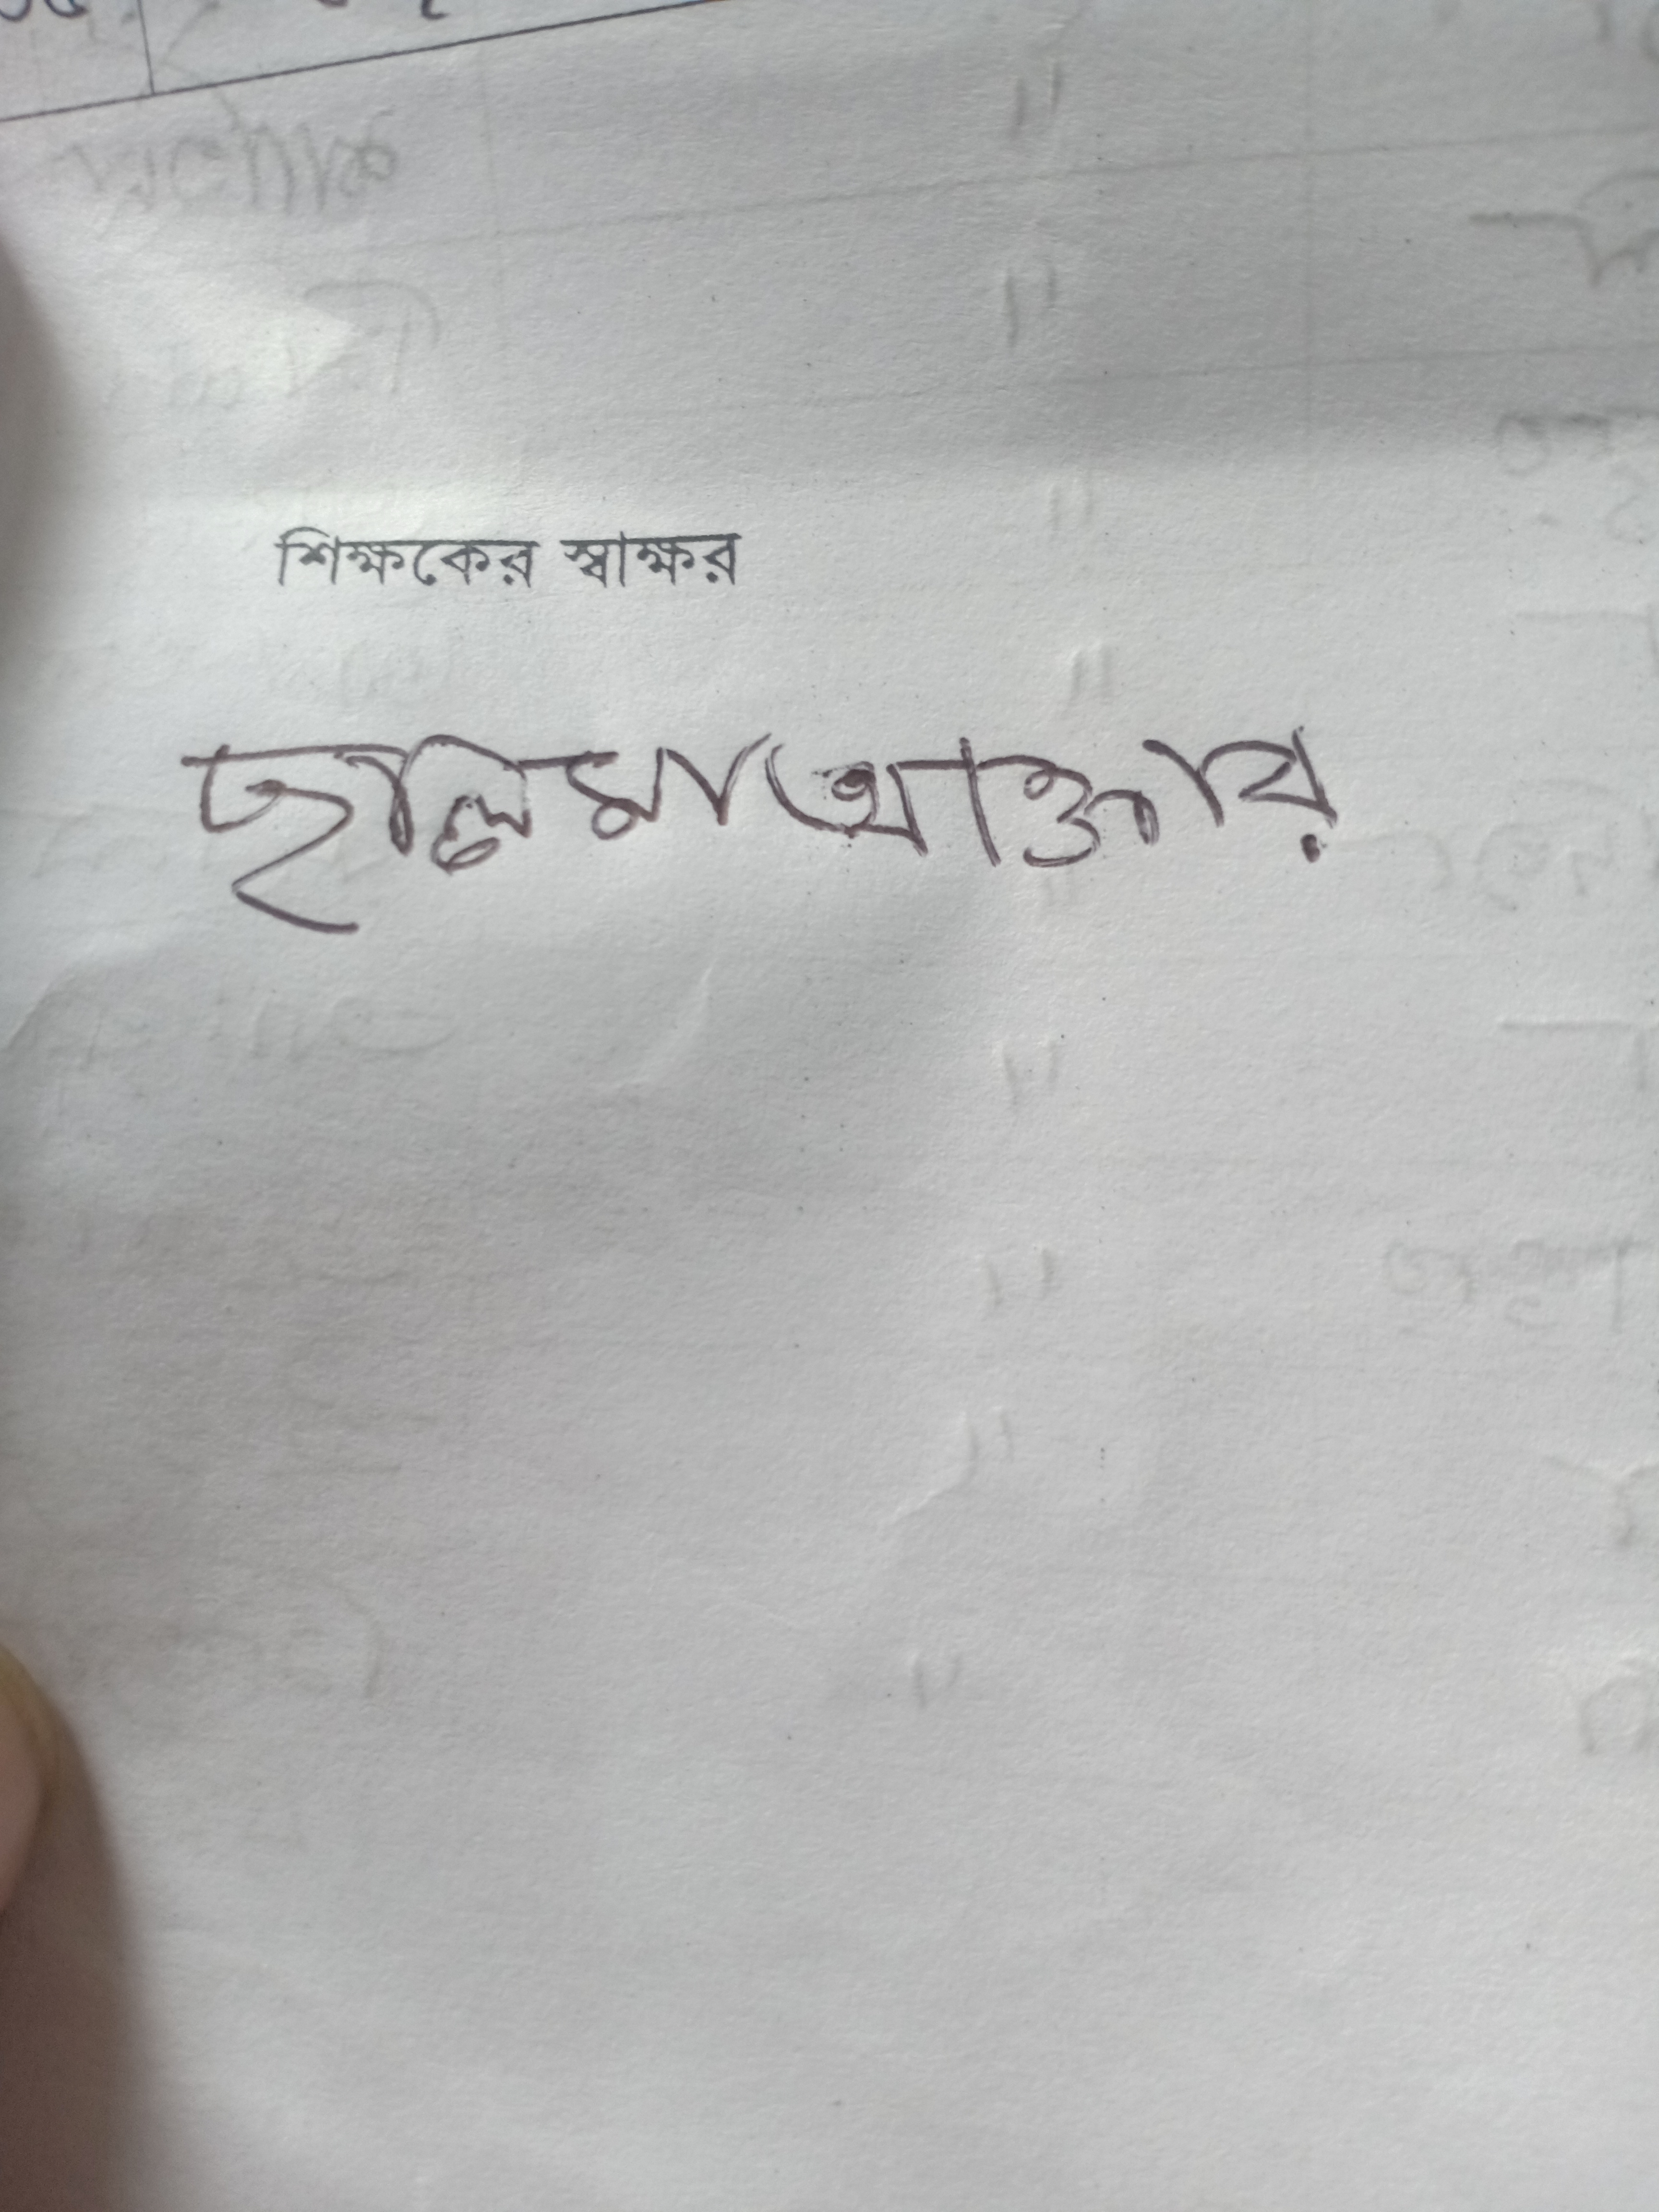 শিক্ষকের স্বাক্ষর
হালিমা আক্তার